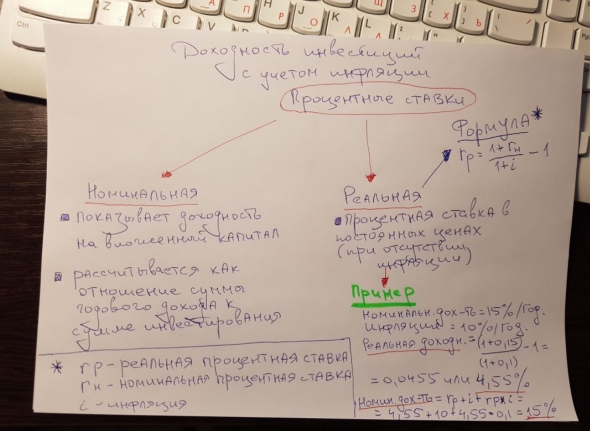 Доходность инвестиций
с учетом инфляции
Процентные ставки
Формула*
rр = (1+rн)/(1+i) - 1
Номинальная
показывает доходность
на вложенный капитал
рассчитывается как
отношение суммы
годового дохода к
сумме инвестирования
Реальная
процентная ставка в
постоянных ценах
(при отсутствии
инфляции)
Пример
Номинальн. дох-ть = 15%/год.
Инфляция = 10%/год.
Реальная доходн. = (1+0,15)/(1+0,1) - 1 =
= 0,0455 или 4,55%
Номин. дох-ть = rр + i + rр × i =
= 4,55 + 10 + 4,55 · 0,1 = 15%
* rр - реальная процентная ставка
rн - номинальная процентная ставка
i - инфляция